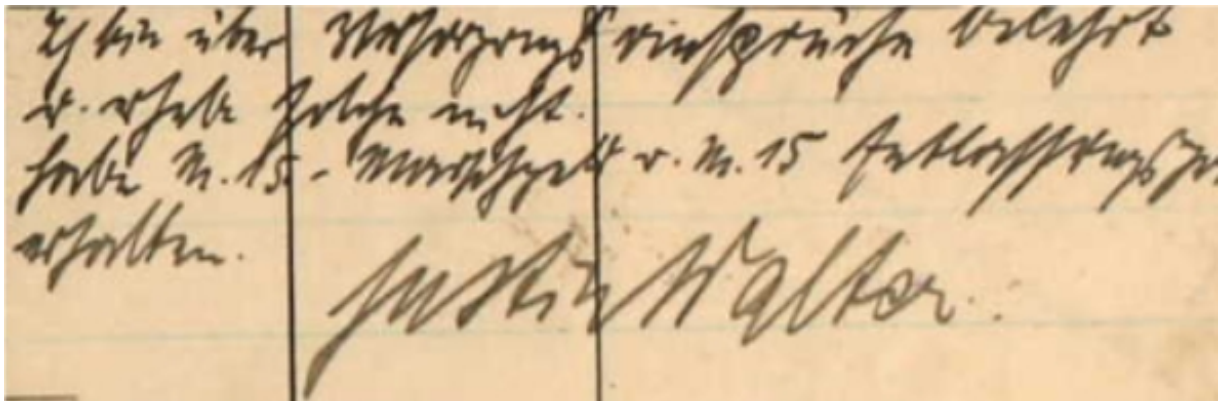 Ich bin über Versorgungsansprüche belehrt
u. erhebe solche nicht.
habe M. 15.- Marschgeld u. M. 15 Entlassungsge
erhalten.
Justin Walter.